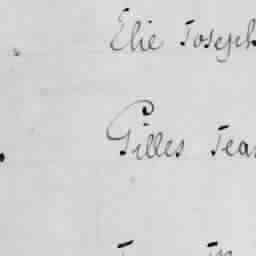 Elie Joseph
Gilles Jean